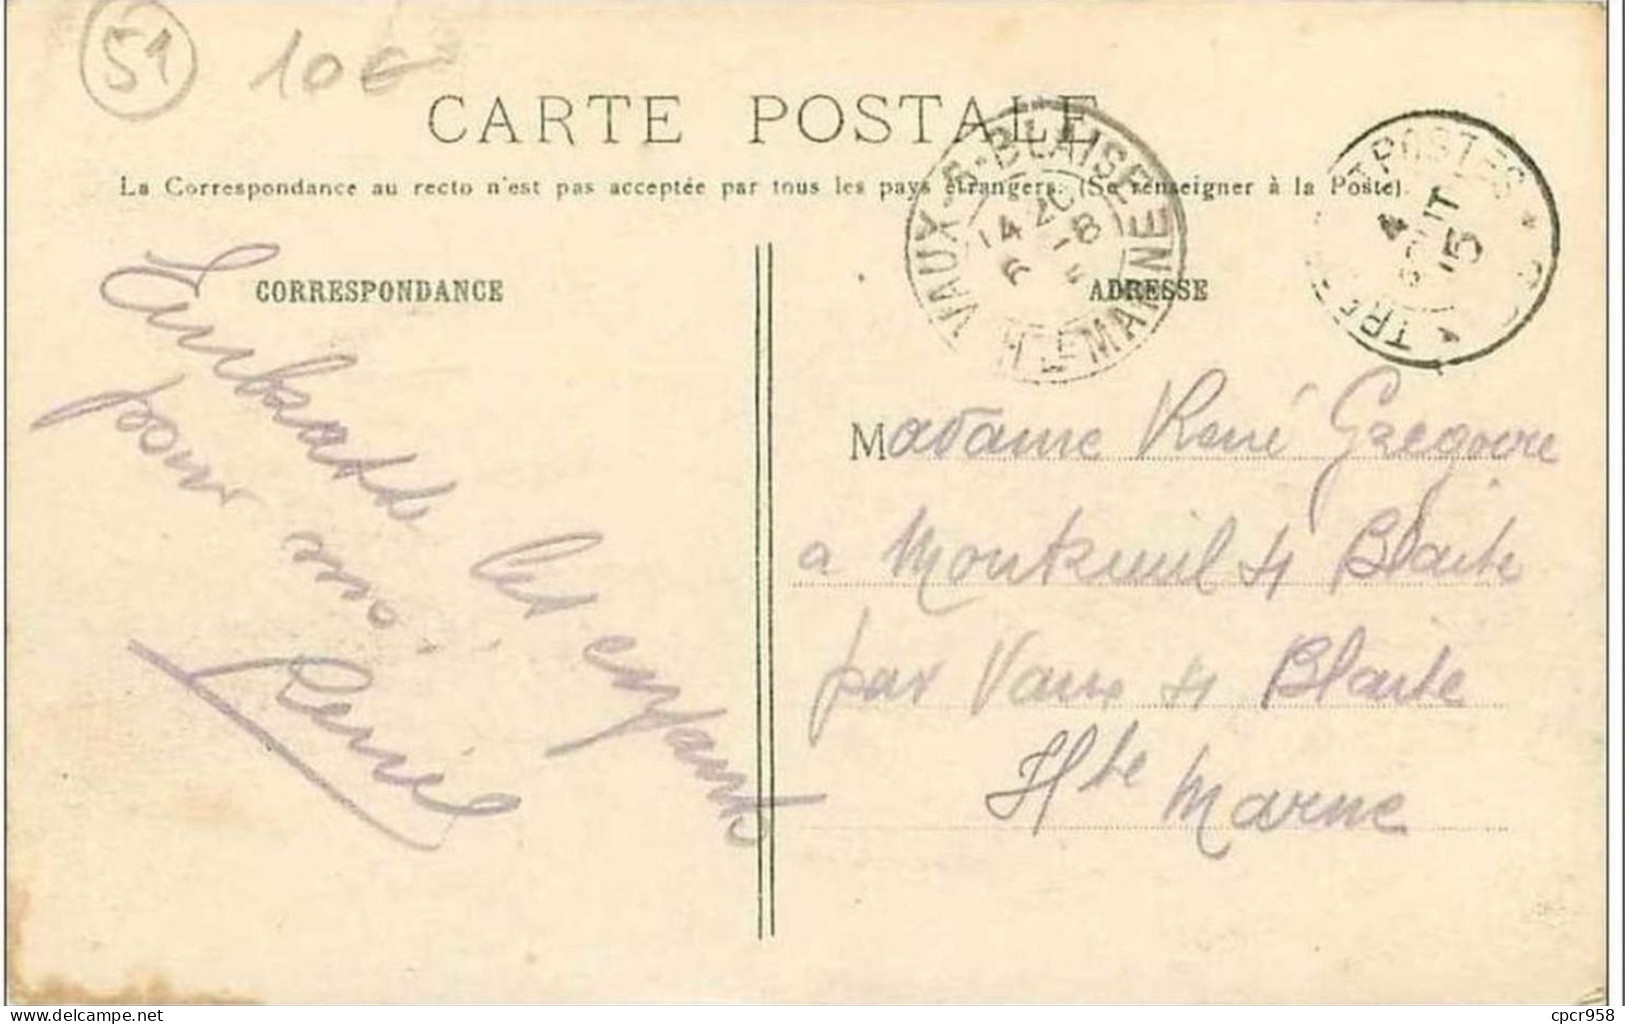 51 10€
CARTE POSTALE
La Correspondance au recto n'est pas acceptée par tous les pays étrangers. (Se renseigner à la Poste)
VAUX-S-BLAISE
14 20
6 -8
HTE-MARNE
POSTES
4
AOUT
15
CORRESPONDANCE
ADRESSE
Embrasse les enfants
pour moi.
René
Madame René Gregoire
a Montreuil s/ Blaise
par Vaux s/ Blaise
Hte Marne
www.delcampe.net
cpcr958